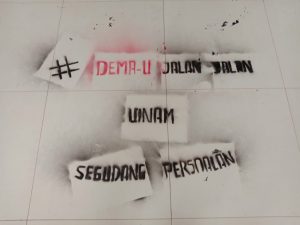 # DEMA-U JALAN JALAN
UINAM
SEGUDANG PERSOALAN